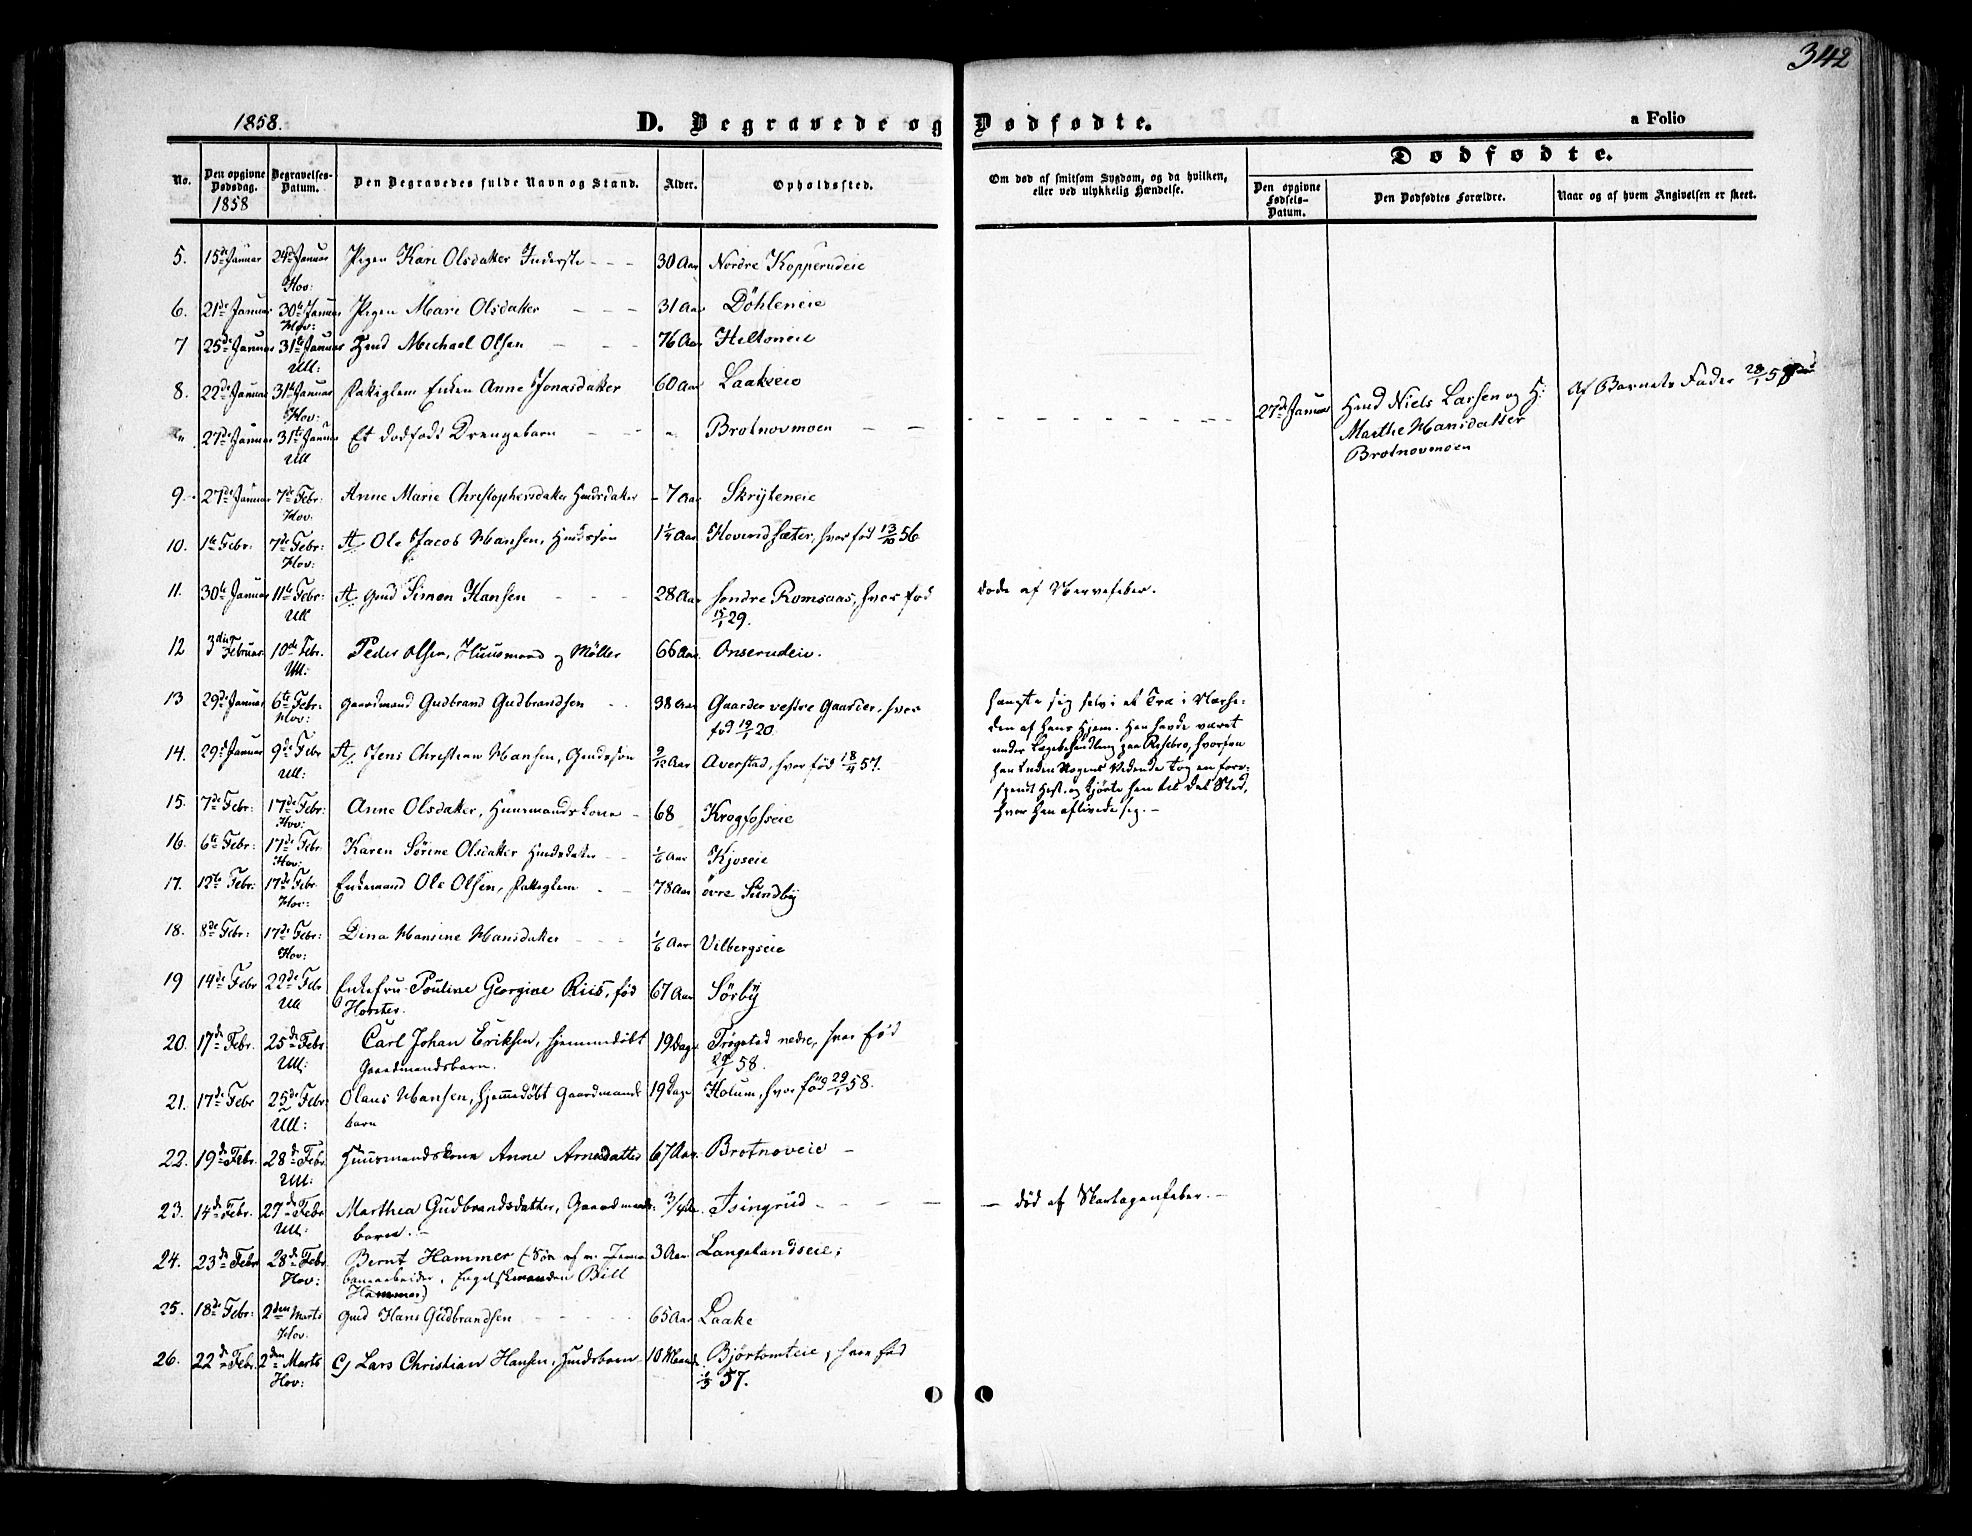 342
1858.
D. Begravede og Dødfødte.
a Folio
Dødfødte.
No.
Den opgivne Dødsdag. 1858
Begravelses-Datum.
Den Begravedes fulde Navn og Stand.
Alder.
Opholdssted.
Om død af smitsom Sygdom, og da hvilken,
eller ved ulykkelig Hændelse.
Den opgivne Fødsels-Datum.
Den Dødfødtes Forældre.
Naar og af hvem Angivelsen er skeet.
5. 15de Januar 24d Januar Pigen Kari Olsdatter Inderste - - - 30 Aar Nordre Kopperudeie
Hov:
6. 21de Januar 30te Januar Pigen Mari Olsdatter - - - 31 Aar Döhleneie
Hov:
7 25de Januar 31te Januar Hmd Michael Olsen - - - 76 Aar Heltoneie
Ull:
8. 22de Januar 31te Januar Enken Anne Jonasdatter 60 Aar Laakeeie
Hov:
" 27de Januar 31te Januar Et dodfødt Drengebarn - - " Brotnovmoen - - 27de Januar Hmd Niels Larsen og H: Af Barnets Fader 28/1 58
Ull
Marthe Hansdatter
Brotnovmoen
9. 27de Januar 7de Febr: Anne Marie Christophersdatter Hmdsdatter - 7 Aar Skryteneie
Hov:
10. 1te Febr. 7de Febr: Ole Jacob Hansen, Hmdssøn 1¼ Aar Hovindsæter, hvor fød 13/10 56
Hov:
11. 30te Januar 11te Febr: Gmd Simen Hansen - - - 28 Aar søndre Romsaas, hvor fød døde af Nervefeber.
Ull
15/1 29.
12 3die Februar 10de Febr. Peder Olsen, Huusmand og Møller 66 Aar. Onserudeie.
Ull:
13 29de Januar 6te Febr: Gaardmand Gudbrand Gudbrandsen - - 38 Aar Gaarder vestre Gaarder, hvor
Hov:
fød 19/1 20
hængte sig selv i et Træ i Nærhe-
den af Hans Hjem. Han havde været
under Lægebehandling paa Risebro, hvorfra
han uden Nogens Vidende tog en for-
spændt Hest og kjørte hen til det Sted,
hvor han aflivede sig. -
14. 29d Januar 9de Febr Jens Christian Hansen, Gmdssøn 9/12 Aar Averstad, hvor fød 18/4 57.
Ull:
15. 7de Febr: 17de Febr: Anne Olsdatter, Huusmandskone - 68 Krogfosseie
Hov:
16. 6te Febr: 17de Febr Karen Sörine Olsdatter Hmdsdatter - - 1/6 Aar Kjoseie
Hov:
17. 12te Febr: 17de Febr Enkemand Ole Olsen, - - 78 Aar øvre Sundby
Hov:
18. 8de Febr: 17de Febr: Dina Hansine Hansdatter - - - 1/6 Aar Vilbergseie
Hov:
19 14de Febr 22de Febr Enkefru Pouline Georgine Riis, fød 67 Aar Sörby
Ull
Horster.
20. 17de Febr. 25de Febr Carl Johan Eriksen, hjemmedøbt 19 Dage Trøgstad nedre, hvor fød
Ull:
Gaardmandsbarn.
29/1 58.
21. 17de Febr 25de Febr: Olaus Hansen, hjemmedøbt Gaardmands 19 Dage Holum, hvor fød 29/1 58.
Ull:
barn
22. 19de Febr. 28de Febr. Huusmandskone Anne Arnesdatter 67 Aar. Brotnoveie -
Ull:
23. 14de Febr. 27de Febr Marthea Gudbrandsdatter, Gaardmands- 3/4 Isingrud - - - - død af Skarlagensfeber. -
Ull:
barn. -
24. 23de Febr 28de Febr. Bernt Hammer (Søn af 3 Aar. Langelandseie;
Hov:
banearbeider, Engelskmanden Bill
Hammer)
25. 18de Febr: 2den Marts Gmd Hans Gudbrandsen - - - - 65 Aar Laake
Hov.
26. 22de Febr. 2den Marts Lars Christian Hansen, Hmdsbarn - 10 Maand. Bjørtomteie, hvor fød
Hov:
57.